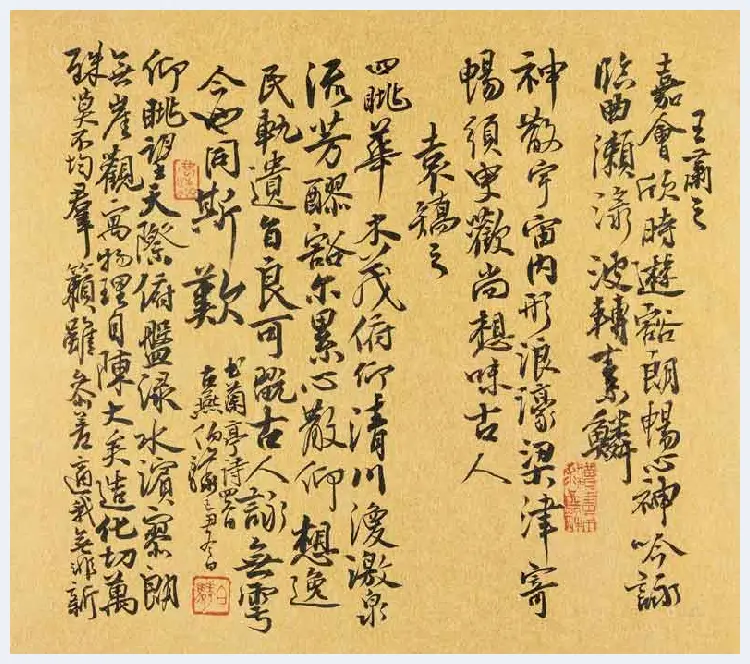 王肅之
嘉會欣時遊豁朗暢心神吟詠
臨曲瀨淥波轉素鱗
神散宇宙內形浪濠梁津寄
暢須臾歡尚想味古人
袁嶠之
四眺華木茂俯仰清川渙激泉
流芳醪豁尔累心散仰想逸
民軌遺旨良可翫古人詠無雩
今也同斯歎
仰眺望天際俯盤淥水濱寥朗
無崖觀萬物理自陳大矣造化切萬
殊莫不均羣籟雖參差適我無非新
書蘭亭詩四首
古燕伯己丑冬日